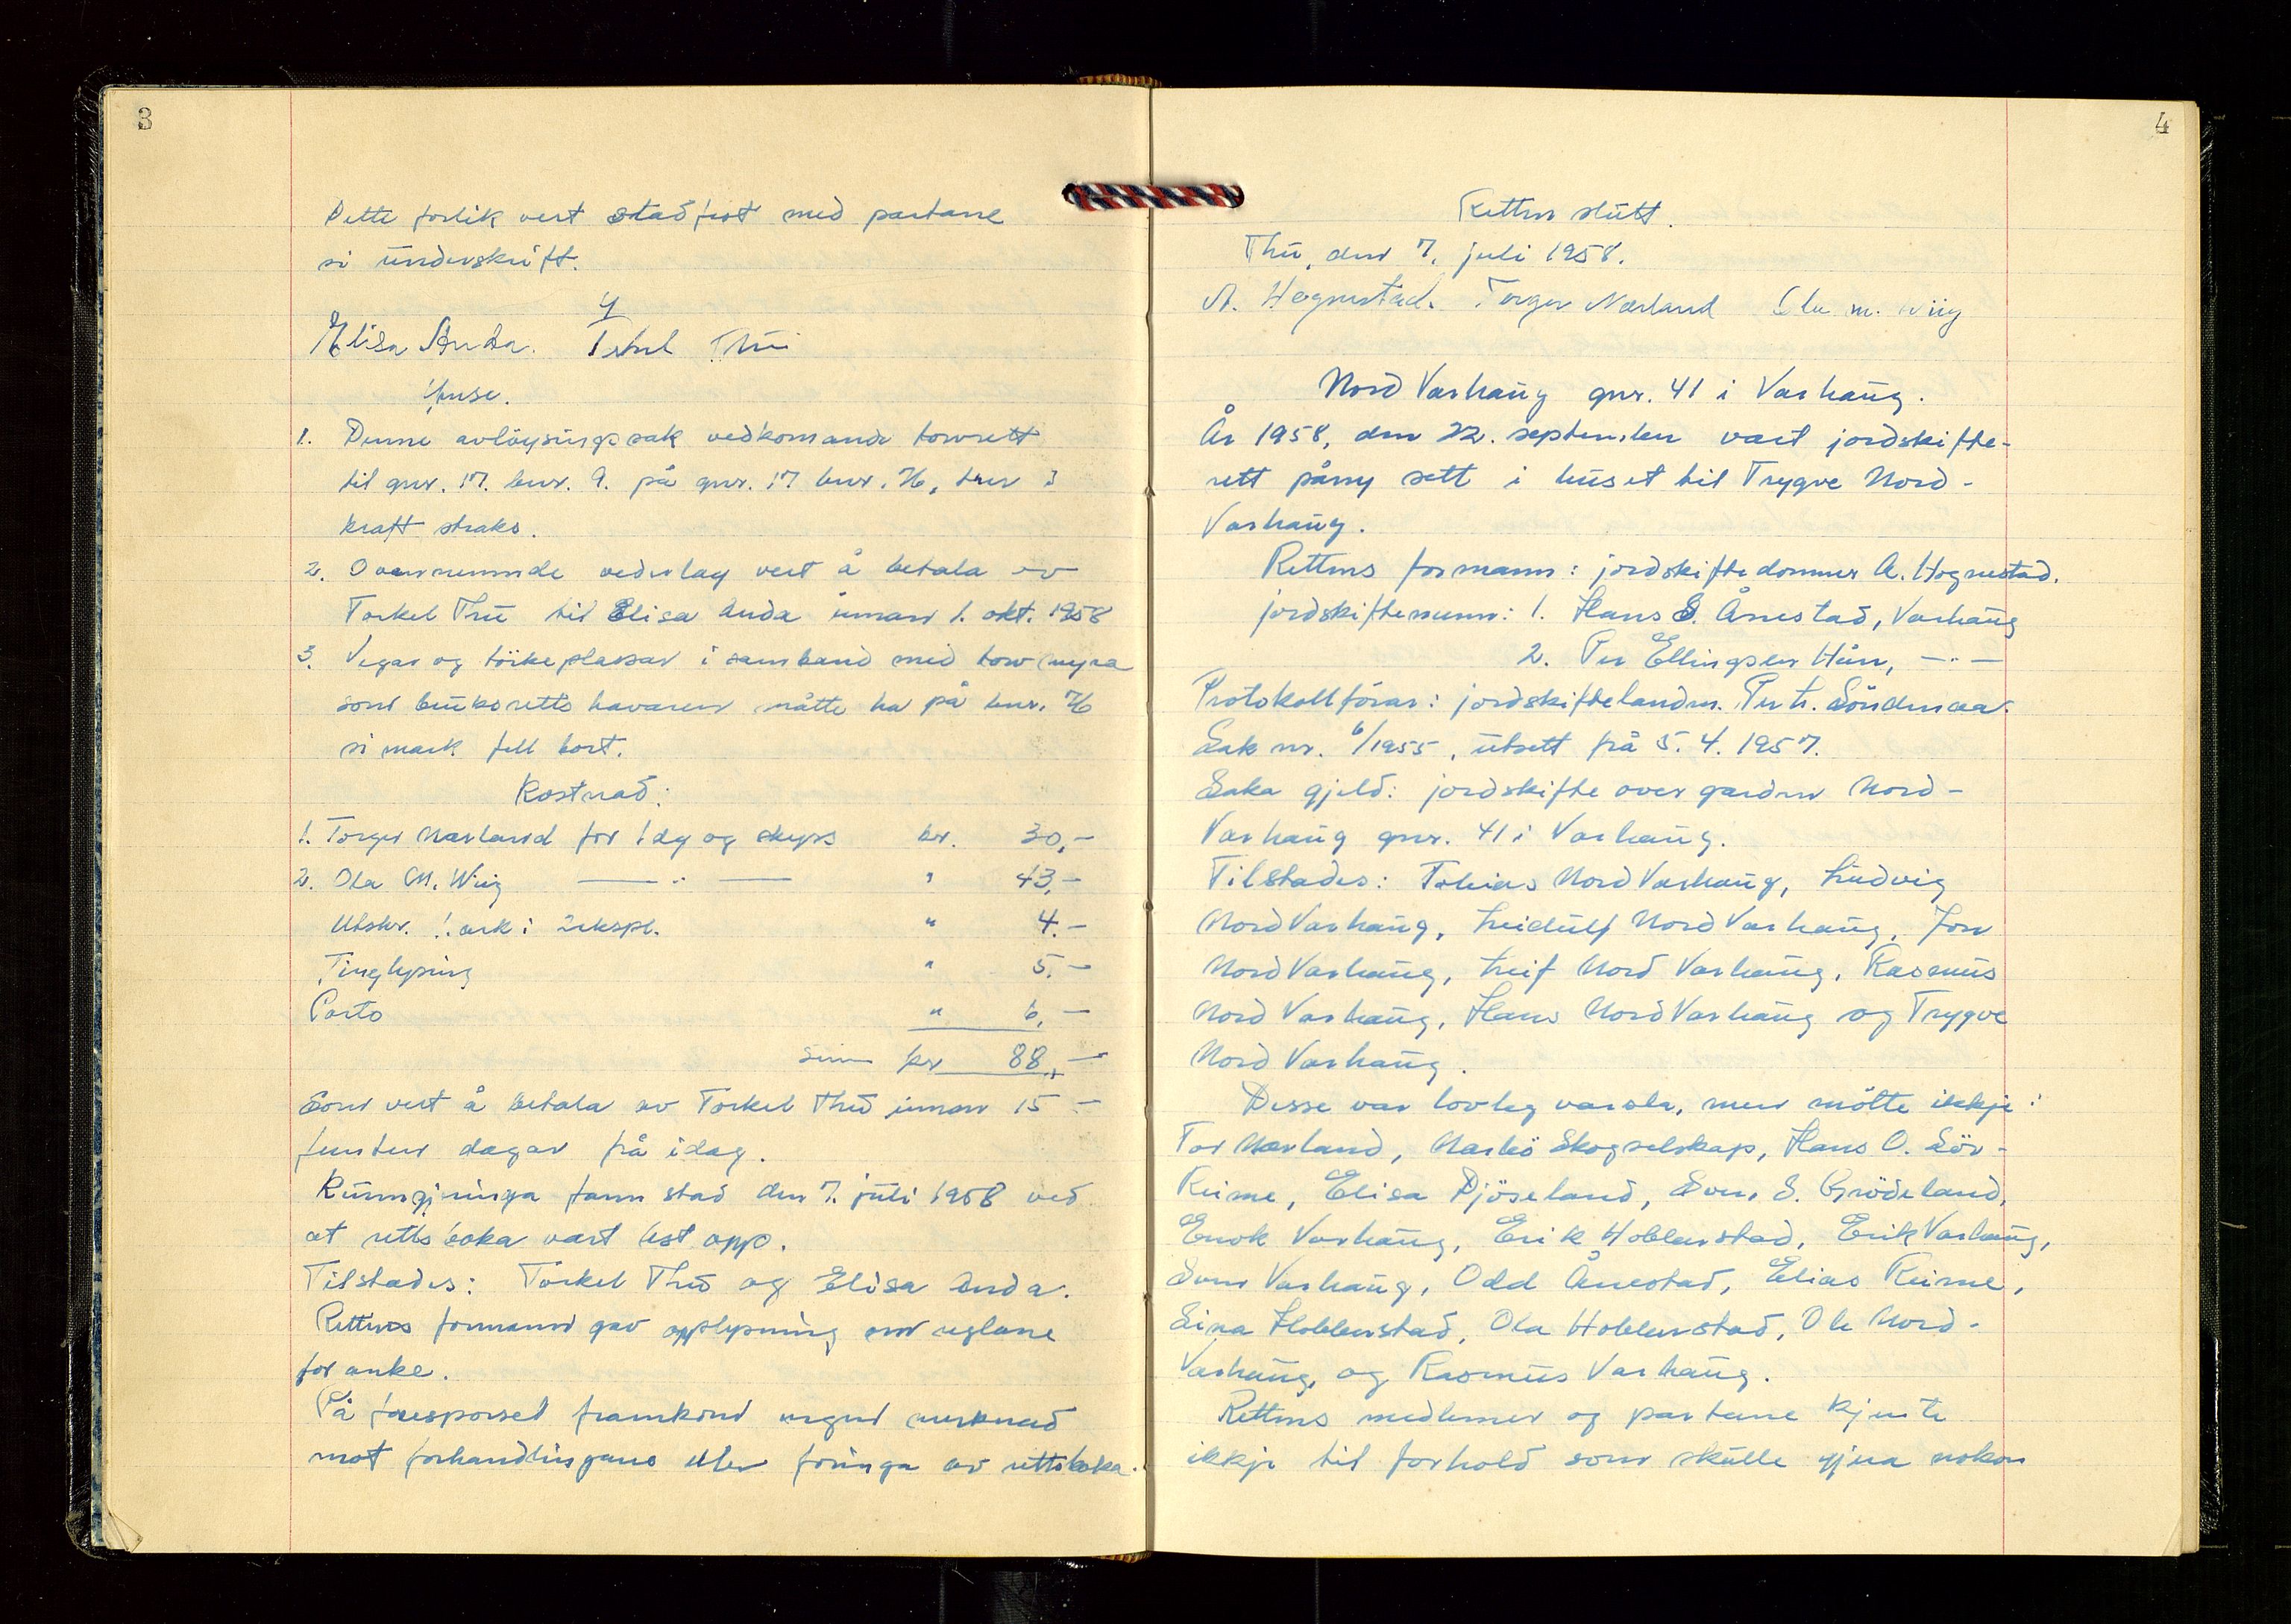 3
Dette forlik vert stadfest med partane
si underskrift.
Elisa Anda. Torkel Thu
1. Denne avløysingssak vedkomande torvrett
til gnr. 17. bnr. 9. på gnr. 17 bnr. 76, trer i
kraft straks.
2. Ovannemnde vederlag vert å betala av
Torkel Thu til Elisa Anda innan 1. okt. 1958
3. Vegar og törkeplassar i samband med torvmyra
som bruksrettshavaren måtte ha på bnr. 76
si mark fell bort.
Kostnad:
1. Torger Nærland for 1 dg og skyss kr. 30,-
2. Ola M. Wiig — " — " 43,-
Utskr. 1. ark i 2 ekspl. " 4.-
Tinglysing " 5.-
Porto " 6,-
Sum kr 88,-
Som vert å betala av Torkel Thu innan 15 -
femten dagar frå idag.
Kunngjeringa fann stad den 7. juli 1958 ved
at rettsboka vart lest opp.
Tilstades: Torkel Thu og Elisa Anda.
Rettens formann gav opplysning om reglane
for anke.
På forespørsel framkom ingen merknad
mot forhandlingane eller føringa av rettsboka.
4
Retten slutt.
Thu, den 7. juli 1958.
A. Hognestad. Torger Nærland Ola M. Wiig
Nord Varhaug gnr. 41 i Varhaug.
År 1958, den 22. september vart jordskifte-
rett påny sett i huset til Trygve Nord-
Varhaug.
Rettens formann: jordskiftedommer A. Hognestad.
jordskiftemenn: 1. Hans S. Ånestad, Varhaug
2. Per Ellingsen Hån, — " —
Protokollförar: jordskiftelandm. Per H. Söndenaa.
Sak nr. 6/1955, utsett frå 5. 4. 1957.
Saka gjeld: jordskifte over garden Nord-
Varhaug gnr. 41 i Varhaug.
Tilstades: Tobias Nord Varhaug, Ludvig
Nord Varhaug, Leidulf Nord Varhaug, Jon
Nord Varhaug, Leif Nord Varhaug, Rasmus
Nord Varhaug, Hans Nord Varhaug og Trygve
Nord Varhaug.
Desse var lovleg varsla, men mötte ikkje:
Tor Nærland, Nærbö Skogselskap, Hans O. Sör-
Reime, Elisa Djöseland, Sven S. Grödeland,
Enok Varhaug, Erik Hobberstad, Erik Varhaug,
Sven Varhaug, Odd Ånestad, Elias Reime,
Sina Hobberstad, Ola Hobberstad, Ole Nord-
Varhaug, og Rasmus Varhaug.
Rettens medlemer og partane kjente
ikkje til forhold som skulle gjera nokon